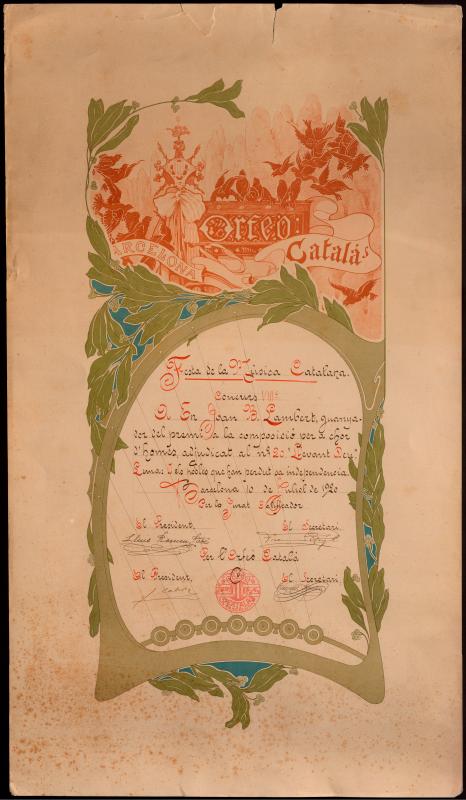 Orfeó
Català
BARCELONA
Festa de la Música Catalana.
Concurs VIIIè
A En Joan B. Lambert, guanya-
dor del premi a la composició per a chor
d'homes, adjudicat al nº 20 "Llevant Deu"
Lema: I els pobles que han perdut sa independencia.
Barcelona 10 de Juliol de 1920
Per lo Jurat Calificador
El President,
El Secretari.
Per l'Orfeó Català
El President,
El Secretari,